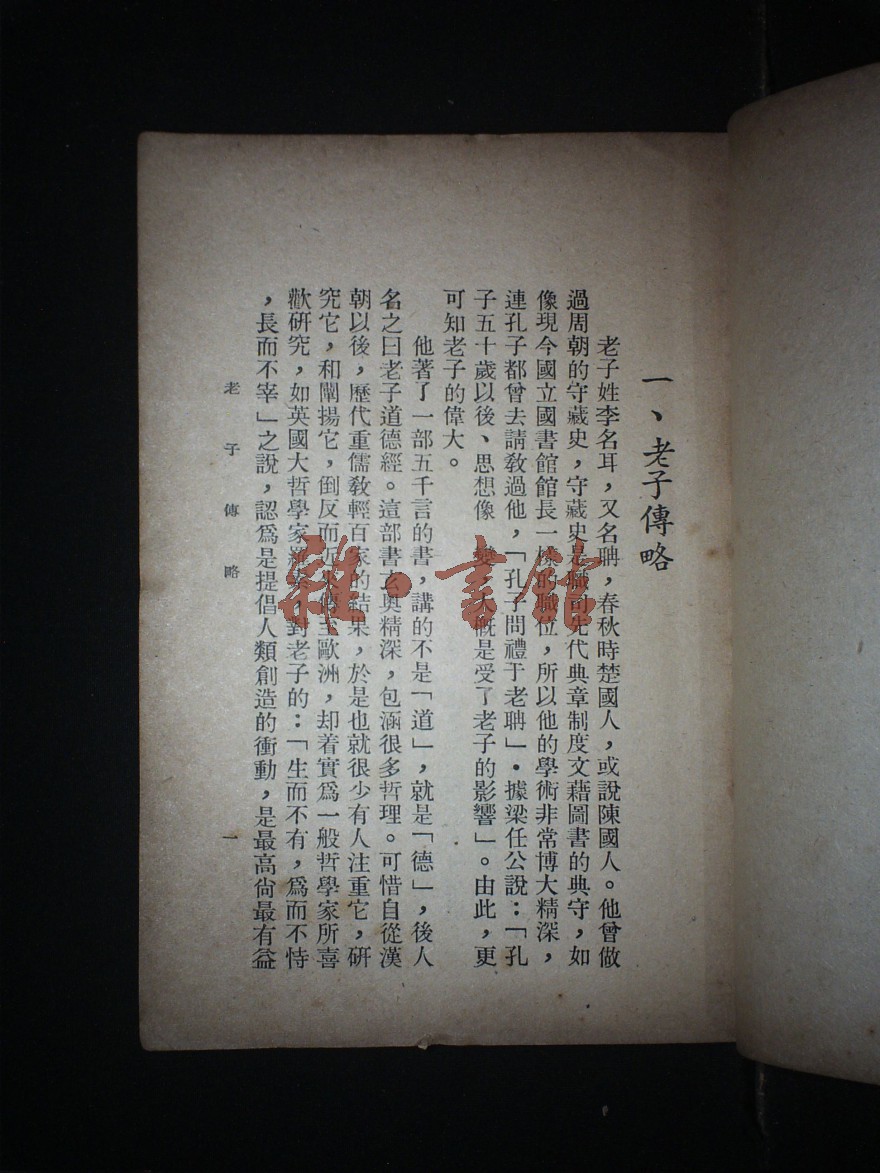 一、老子傳略
老子姓李名耳，又名聃，春秋時楚國人，或說陳國人。他曾做
過周朝的守藏史，守藏史是職司先代典章制度文藉圖書的典守，如
像現今國立國書館館長一樣的職位，所以他的學術非常博大精深，
連孔子都曾去請敎過他，「孔子問禮于老聃」。據梁任公說：「孔
子五十歲以後、思想像 變，大概是受了老子的影響」。由此，更
可知老子的偉大。
他著了一部五千言的書，講的不是「道」，就是「德」，後人
名之曰老子道德經。這部書玄奥精深，包涵很多哲理。可惜自從漢
朝以後，歷代重儒敎輕百家的結果，於是也就很少有人注重它，硏
究它，和闡揚它，倒反而近來傳至歐洲，却着實爲一般哲學家所喜
歡硏究，如英國大哲學家羅素，對老子的：「生而不有，爲而不恃
，長而不宰」之說，認爲是提倡人類創造的衝動，是最高尙最有益
老子傳略
一
雜·書館